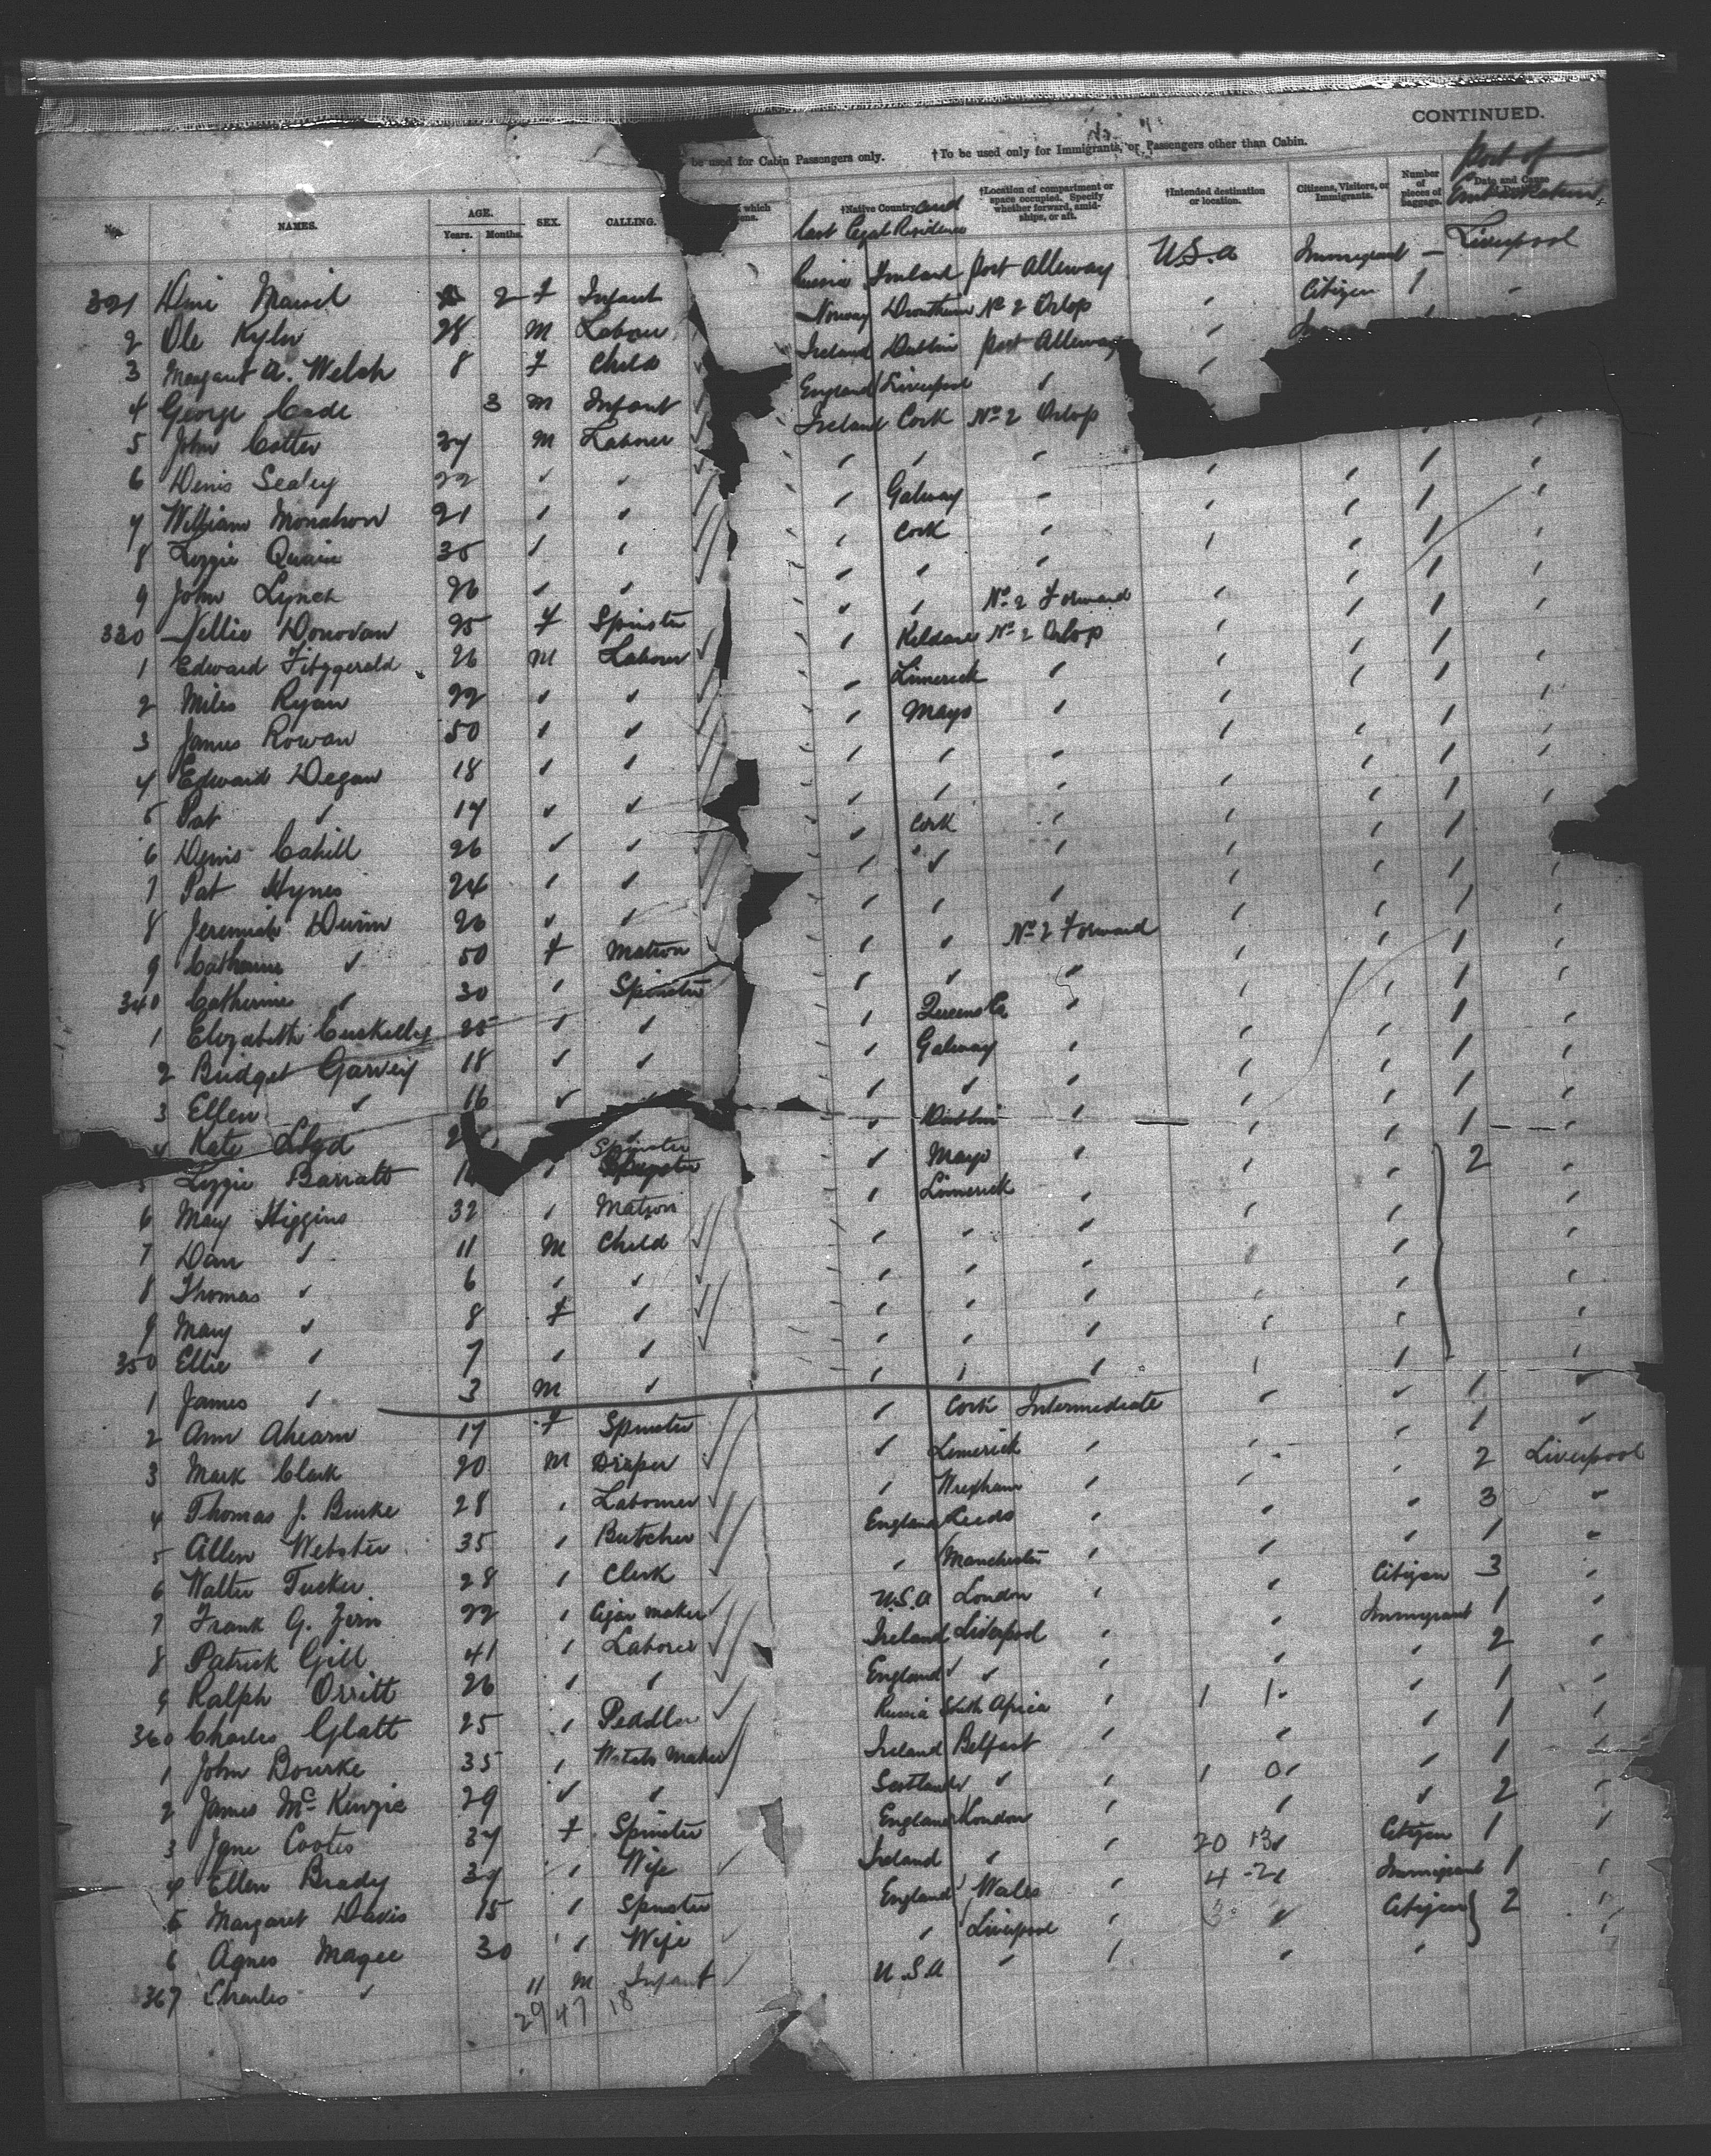 CONTINUED.
be used for Cabin Passengers only. †To be used only for Immigrants, or Passengers other than Cabin.
Port of Embarkation
No. NAMES. AGE. Years. Months. SEX. CALLING. which †Native Country and last legal Residence †Location of compartment or space occupied. Specify whether forward, amidships, or aft. †Intended destination or location. Citizens, Visitors, or Immigrants. Number of pieces of baggage. Date and Cause
321 2 f Infant Russia Finland Port Alleway U.S.A Immigrant — Liverpool
2 Ole 28 M Labour Norway No 2 Orlop " Citizen 1 "
3 Margaret A. Welch 8 f Child Ireland Dublin Port Alleway "
4 George Cade 3 M Infant England Liverpool " "
5 John Cotter 37 M Labourer Ireland Cork No 2 Orlop
6 Denis Sealey 22 " " " " " " " 1 "
7 William Monahon 21 " " " Galway " " " 1 "
8 Lizzie Quain 35 " " " Cork " " " 1 "
9 John Lynch 26 " " " " " " " 1 "
330 Nellie Donovan 25 f Spinster " " No 2 Forward " " 1 "
1 Edward Fitzgerald 26 M Labour " Kildare No 2 Orlop " " 1 "
2 Miles Ryan 22 " " " Limerick " " " 1 "
3 James Rowan 50 " " " Mayo " " " 1 "
4 Edward Degan 18 " " " " " " " 1 "
5 Pat " 17 " " " " " " " 1 "
6 Denis Cahill 26 " " " Cork " " " 1 "
7 Pat Hynes 24 " " " " " " " 1 "
8 Jeremiah Dunn 26 " " " " " " " 1 "
9 Catherine " 50 f Matron " " No 2 Forward " " 1 "
340 Catherine " 30 " Spinster " " " " " 1 "
1 Elizabeth Cuskelly 25 " " " Queens Co " " " 1 "
2 Bridget Garvey 18 " " " Galway " " " 1 "
3 Ellen " 16 " " " " " " " 1 "
4 Kate " Dublin " " " 1 "
5 Lizzie Barratt " Spinster " Mayo " " " 2 "
6 Mary Higgins 32 " Matron " Limerick " " " "
7 Dan " 11 M Child " " " " " "
8 Thomas " 6 " " " " " " " "
9 Mary " 8 f " " " " " " "
350 Ellie " 7 " " " " " " " "
1 James " 3 M " " " " " " "
2 Ann Ahearn 17 f Spinster " Cork Intermediate " " 1 "
3 Mark Clark 20 M Draper " Limerick " " " 1 "
4 Thomas J. Burke 28 " Labourer " Wrexham " " " 2 Liverpool
5 Allen Webster 35 " Butcher England Leeds " " " 3 "
6 Walter Tucker 28 " Clerk " Manchester " " " 1 "
7 Frank G. 22 " Cigar maker U.S.A London " " Citizen 3 "
8 Patrick Gill 41 " Laborer Ireland Liverpool " " Immigrant 1 "
9 Ralph Orritt 26 " " England " " " " 2 "
360 Charles Glatt 25 " Peddler Russia South Africa " " " 1 "
1 John Bourke 35 " Watch Maker Ireland Belfast " " " 1 "
2 James McKenzie 29 " " Scotland " " " " 1 "
3 Jane Cootes 37 f Spinster England London " " " 2 "
4 Ellen Brady 37 " Wife Ireland " " 20 13 " Citizen 1 "
5 Margaret Davis 15 " Spinster England Wales " 4 -2 " Immigrant 1 "
6 Agnes Magee 30 " Wife " Liverpool " " Citizen 2 "
367 Charles " 11 M Infant U.S.A " " " " "
29 47 18